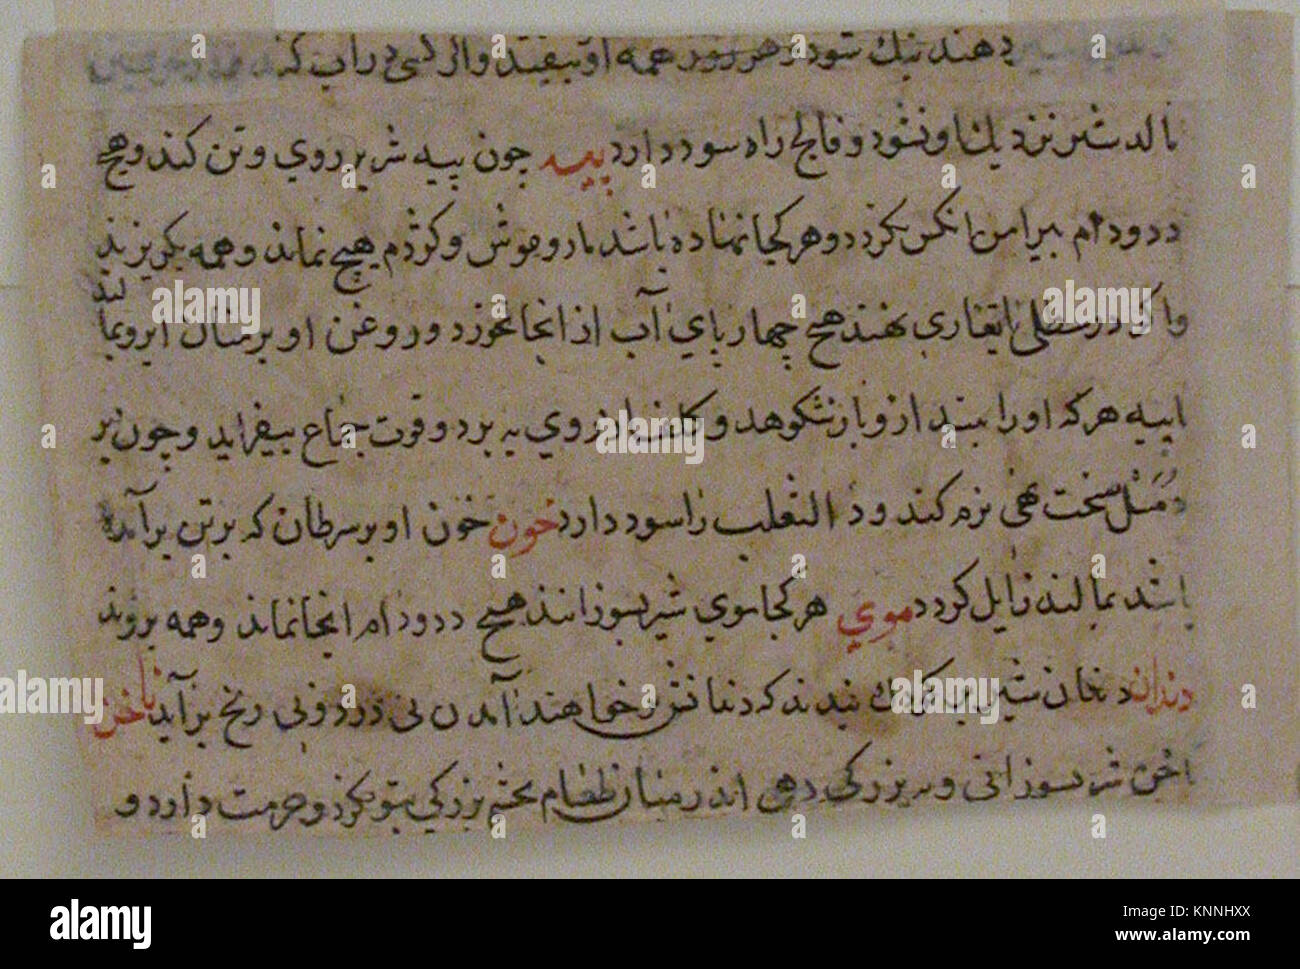 دهند نیک شود و هر موی همه او بیفتد واکر کسی در آب کند
مالد شیر نزدیک او نشود و فالج راه سود دارد پیه چون پیه شیر بر روی و تن کند و هیچ
دد و دام پیرامن انکس نکردد و هر کجا نهاده باشد مار و موش و کژدم هیچ نماند و همه بکریزند
واکر در سطلی یا تغاری نهند هیچ چهارپای آب از انجا نخورد و روغن او بر میان ابرو بمالند
پیه هر که او را بیند ازو باز شکوهد و کلف از روی ببرد و قوت جماع بیفزاید و چون بر
دُمَل سخت نهی نرم کند و دا الثعلب را سود دارد خون خون او بر سرطان که بر تن برآمده
باشد بمالند زایل کردد موی هر کجا موی شیر بسوزانند هیچ دد و دام انجا نماند و همه بروند
دندان دندان شیر بر کودک بندند که دندانش نخواهند آمدن بی درد و بی رنج برآید ناخن
ناخن شیر بسوزانی و به بزرکی دهی اندر میان طعام بچشم بزرکی بتو نکرد و حرمت دارد و
alamy
Image ID: KNNHXX
www.alamy.com